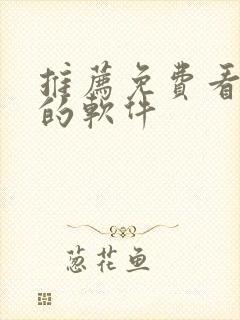 推薦免費看
的軟件
葱花鱼